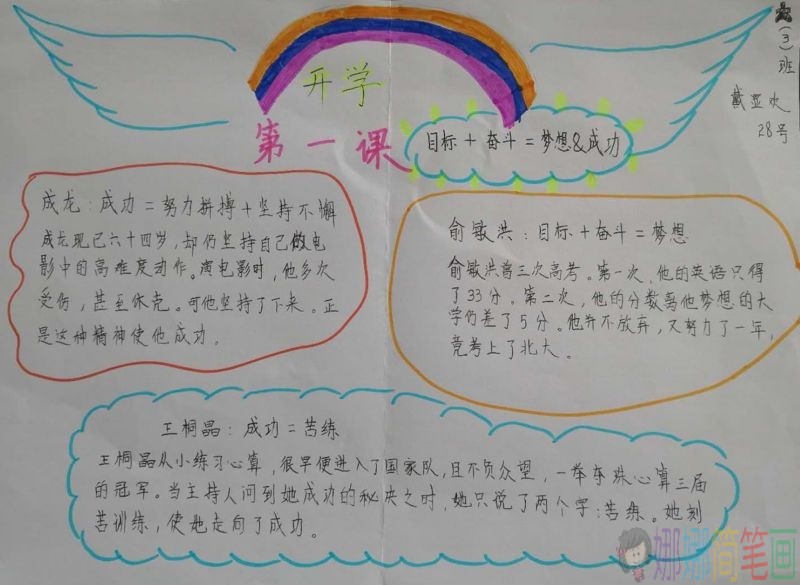 （3）班
戴显次
28号
开学
第一课
目标+奋斗=梦想&成功
成龙：成功=努力拼搏+坚持不懈
成龙现已六十四岁，却仍坚持自己做电
影中的高难度动作。演电影时，他多次
受伤，甚至休克。可他坚持了下来。正
是这种精神使他成功。
俞敏洪：目标+奋斗=梦想
俞敏洪曾三次高考。第一次，他的英语只得
了33分。第二次，他的分数离他梦想的大
学仍差了5分。他并不放弃，又努力了一年，
竟考上了北大。
王桐晶：成功=苦练
王桐晶从小练习心算，很早便进入了国家队，且不负众望，一举夺珠心算三届
的冠军。当主持人问到她成功的秘决之时，她只说了两个字：苦练。她刻
苦训练，使她走向了成功。
娜娜简笔画